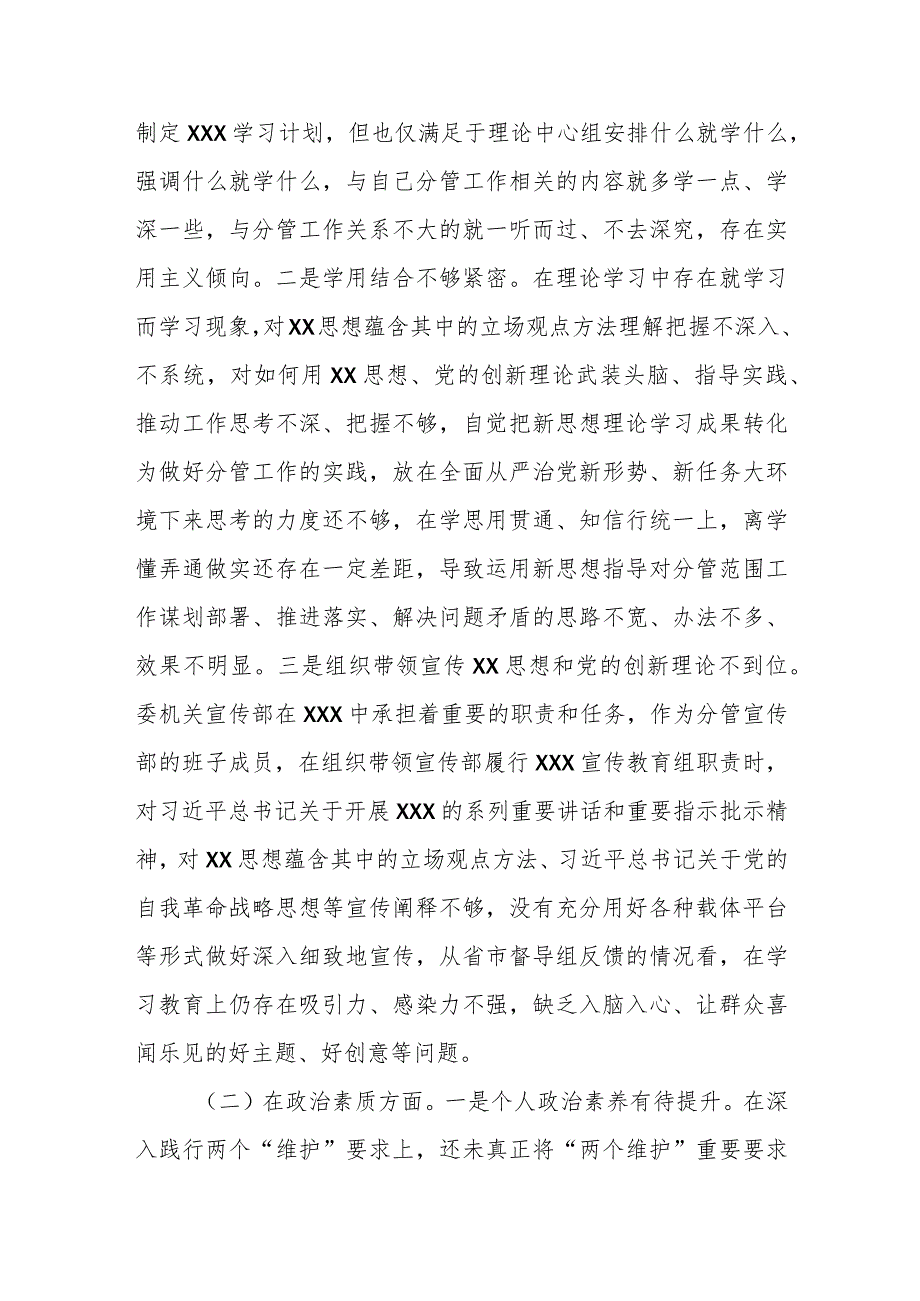 制定 XXX 学习计划，但也仅满足于理论中心组安排什么就学什么，
强调什么就学什么，与自己分管工作相关的内容就多学一点、学
深一些，与分管工作关系不大的就一听而过、不去深究，存在实
用主义倾向。二是学用结合不够紧密。在理论学习中存在就学习
而学习现象，对 XX 思想蕴含其中的立场观点方法理解把握不深入、
不系统，对如何用 XX 思想、党的创新理论武装头脑、指导实践、
推动工作思考不深、把握不够，自觉把新思想理论学习成果转化
为做好分管工作的实践，放在全面从严治党新形势、新任务大环
境下来思考的力度还不够，在学思用贯通、知信行统一上，离学
懂弄通做实还存在一定差距，导致运用新思想指导对分管范围工
作谋划部署、推进落实、解决问题矛盾的思路不宽、办法不多、
效果不明显。三是组织带领宣传 XX 思想和党的创新理论不到位。
委机关宣传部在 XXX 中承担着重要的职责和任务，作为分管宣传
部的班子成员，在组织带领宣传部履行 XXX 宣传教育组职责时，
对习近平总书记关于开展 XXX 的系列重要讲话和重要指示批示精
神，对 XX 思想蕴含其中的立场观点方法、习近平总书记关于党的
自我革命战略思想等宣传阐释不够，没有充分用好各种载体平台
等形式做好深入细致地宣传，从省市督导组反馈的情况看，在学
习教育上仍存在吸引力、感染力不强，缺乏入脑入心、让群众喜
闻乐见的好主题、好创意等问题。
（二）在政治素质方面。一是个人政治素养有待提升。在深
入践行两个“维护”要求上，还未真正将“两个维护”重要要求